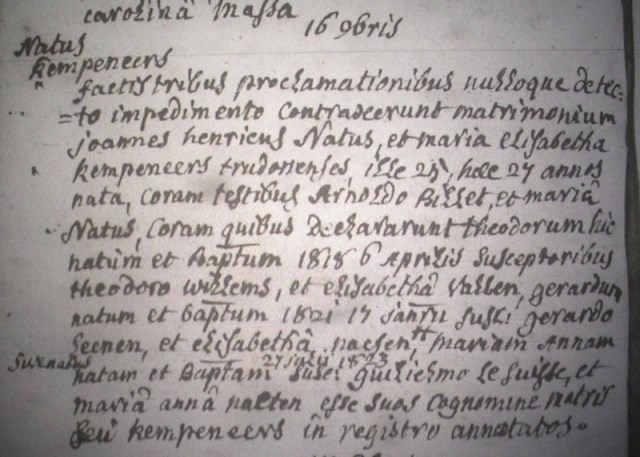 carolinâ Massa
16 9bris
Natus
Kempeneers
factis tribus proclamationibus nulloque detec=
=to impedimento contraxerunt matrimonium
joannes henricus Natus, et maria Elisabetha
Kempeneers trudonenses, ille 25, hæc 27 annos
nata, coram testibus Arnoldo Billet, et mariâ
Natus, coram quibus declararunt theodorum hic
natum et Baptum 1818 6 Aprilis susceptoribus
theodoro willems, et elisabethâ Vallen, gerardum
natum et baptum 1821 17 januarii susci gerardo
Geenen, et elisabethâ, naesen, tt mariam Annam
27 julii 1823
natam et Baptam susci guilielmo le suisse, et
mariâ annâ naeten esse suos cognomine matris
seu kempeneers in registro annotatos.